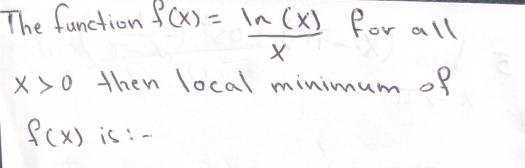 The function f(x) = ln(x)/x for all
x>0 then local minimum of
f(x) is:-